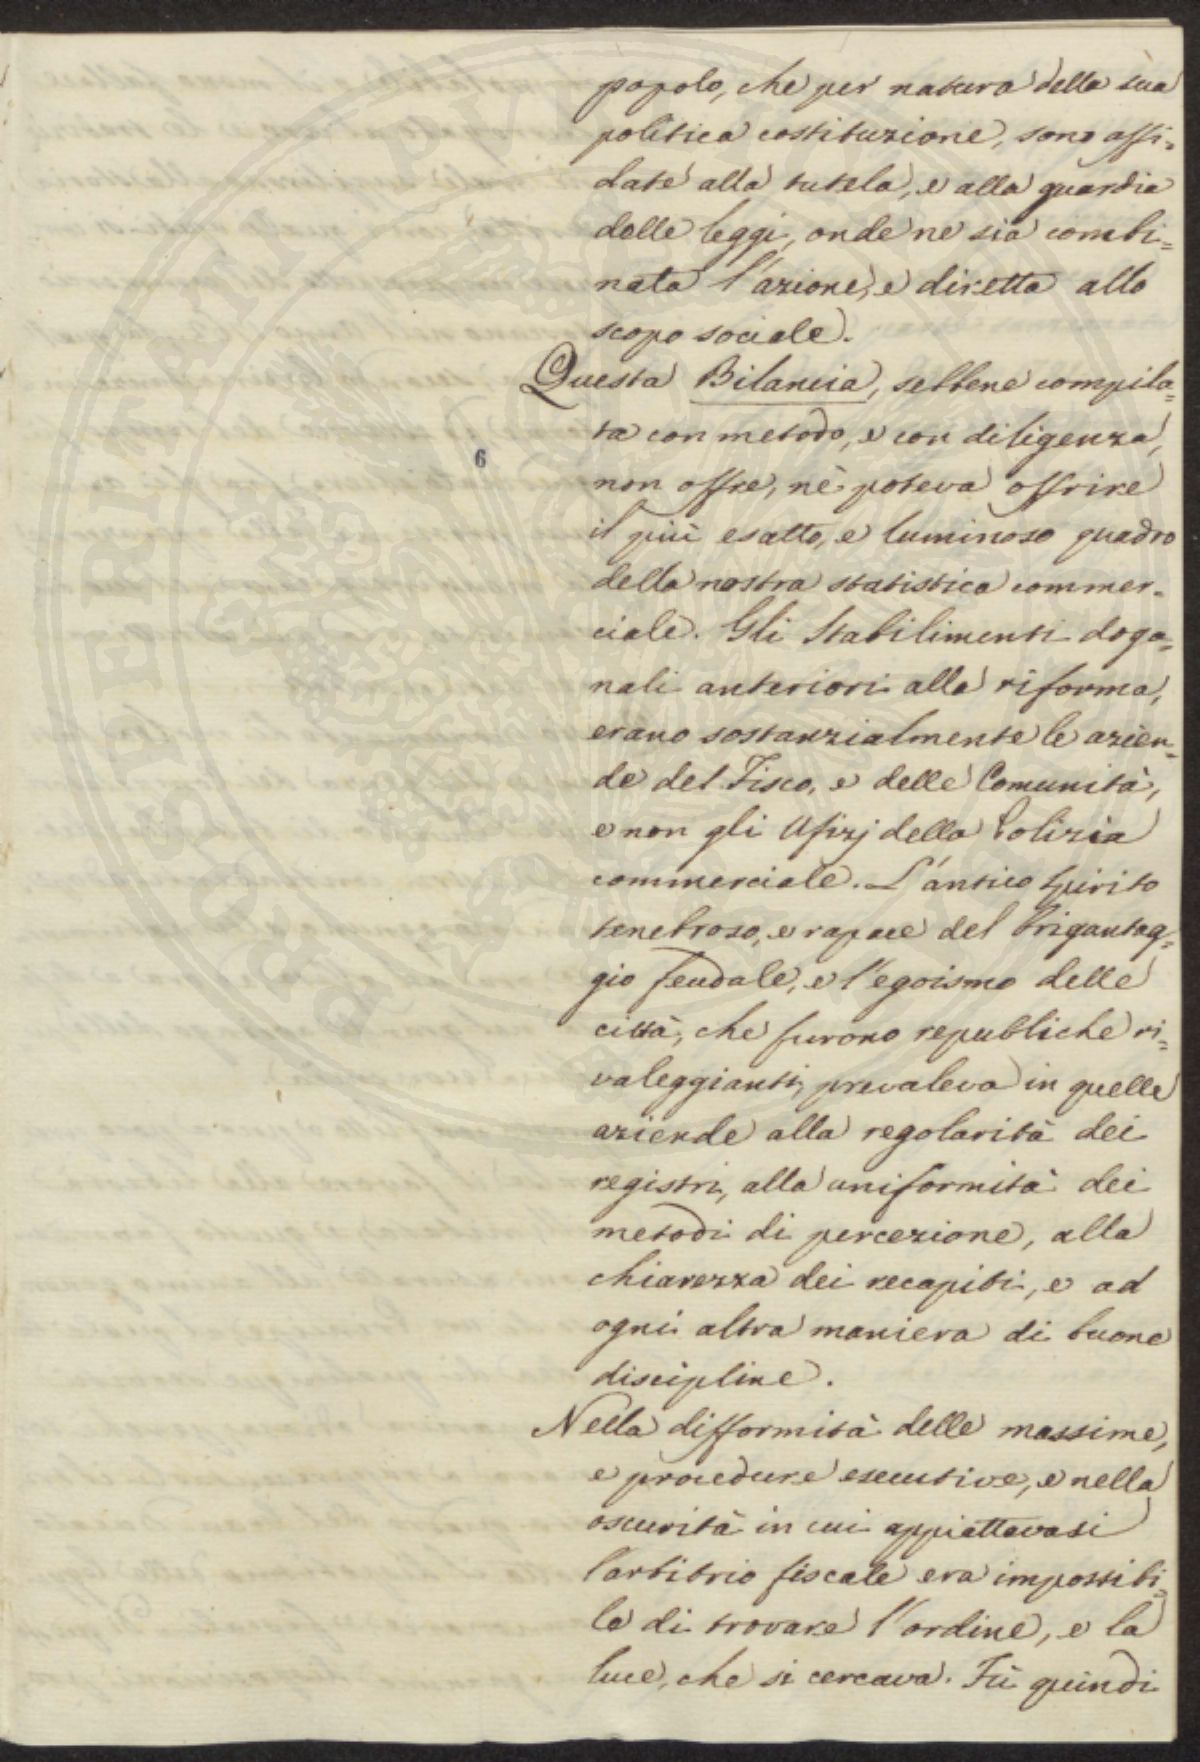 popolo, che per natura della sua
politica costituzione, sono affi=
date alla tutela, e alla guardia
delle leggi, onde ne sia combi=
nata l'azione, e diretta allo
scopo sociale.
Questa Bilancia, sebbene compila=
ta con metodo, e con diligenza,
6
non offre, nè poteva offrire
il più esatto, e luminoso quadro
della nostra statistica commer=
ciale. Gli Stabilimenti doga=
nali anteriori alla riforma,
erano sostanzialmente le azien=
de del Fisco, e delle Comunità,
e non gli Ufizj della Polizia
commerciale. L'antico spirito
tenebroso, e rapace del brigantag=
gio feudale, e l'egoismo delle
città, che furono republiche ri=
valeggianti, prevaleva in quelle
aziende alla regolarità dei
registri, alla uniformità dei
metodi di percezione, alla
chiarezza dei recapiti, e ad
ogni altra maniera di buone
discipline.
Nella difformità delle massime,
e procedure esecutive, e nella
oscurità in cui appiattavasi
l'arbitrio fiscale era impossibi=
le di trovare l'ordine, e la
luce, che si cercava. Fù quindi
PROSPERITATI PVBLICAE